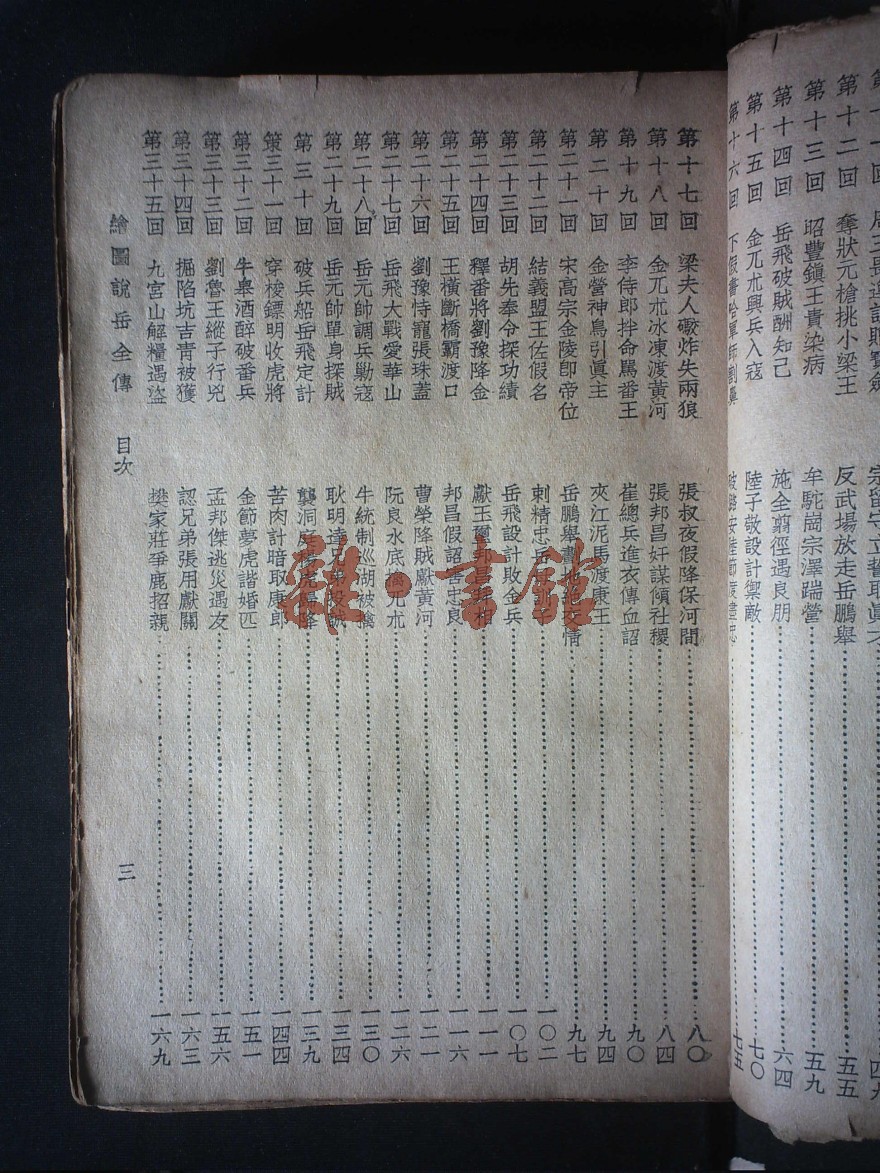 一回 周三畏遵訓贈寶劍 宗留守立誓取眞才 四九
第十二回 奪狀元槍挑小梁王 反武場放走岳鵬舉 五五
第十三回 昭豐鎭王貴染病 牟駝崗宗澤踹營 五九
第十四回 岳飛破賊酬知己 施全翦徑遇良朋 六四
第十五回 金兀朮興兵入寇 陸子敬設計禦敵 七〇
第十六回 下假書哈軍師割鼻 破潞安陸節度盡忠 七五
第十七回 梁夫人礮炸失兩狼 張叔夜假降保河間 八〇
第十八回 金兀朮冰凍渡黃河 張邦昌奸謀傾社稷 八四
第十九回 李侍郎拌命罵番王 崔總兵進衣傳血詔 九〇
第二十回 金營神鳥引眞主 夾江泥馬渡康王 九四
第二十一回 宋高宗金陵卽帝位 岳鵬舉畫 交情 九七
第二十二回 結義盟王佐假名 刺精忠岳 一〇二
第二十三回 胡先奉令探功績 岳飛設計敗金兵 一〇七
第二十四回 釋番將劉豫降金 獻玉璽邦昌 相 一一一
第二十五回 王橫斷橋霸渡口 邦昌假詔害忠良 一一六
第二十六回 劉豫恃寵張珠蓋 曹榮降賊獻黃河 一二一
第二十七回 岳飛大戰愛華山 阮良水底擒兀朮 一二六
第二十八回 岳元帥調兵勦寇 牛統制巡湖被擒 一三〇
第二十九回 岳元帥單身探賊 耿明達 投誠 一三四
第三十回 破兵船岳飛定計 襲洞庭 降 一三九
第三十一回 穿梭鏢明收虎將 苦肉計暗取康郎 一四四
第三十二回 牛臯酒醉破番兵 金節夢虎諧婚匹 一五一
第三十三回 劉魯王縱子行兇 孟邦傑逃災遇友 一五六
第三十四回 掘陷坑吉青被獲 認兄弟張用獻關 一六三
第三十五回 九宮山解糧遇盜 樊家莊爭鹿招親 一六九
繪圖說岳全傳 目次 三
雜·書館